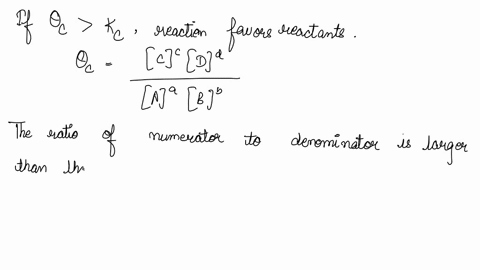 If Qc > Kc, reaction favors reactants.
Qc = [C]^c [D]^d / [A]^a [B]^b
The ratio of numerator to denominator is larger
than th